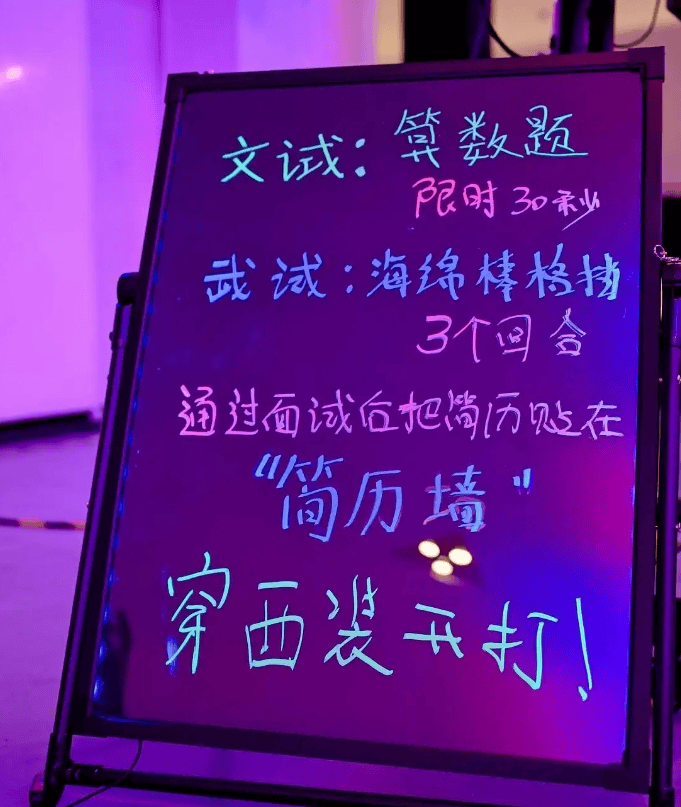 文试：算数题
限时30秒
武试：海绵棒格挡
3个回合
通过面试后把简历贴在
“简历墙”
穿西装开打！